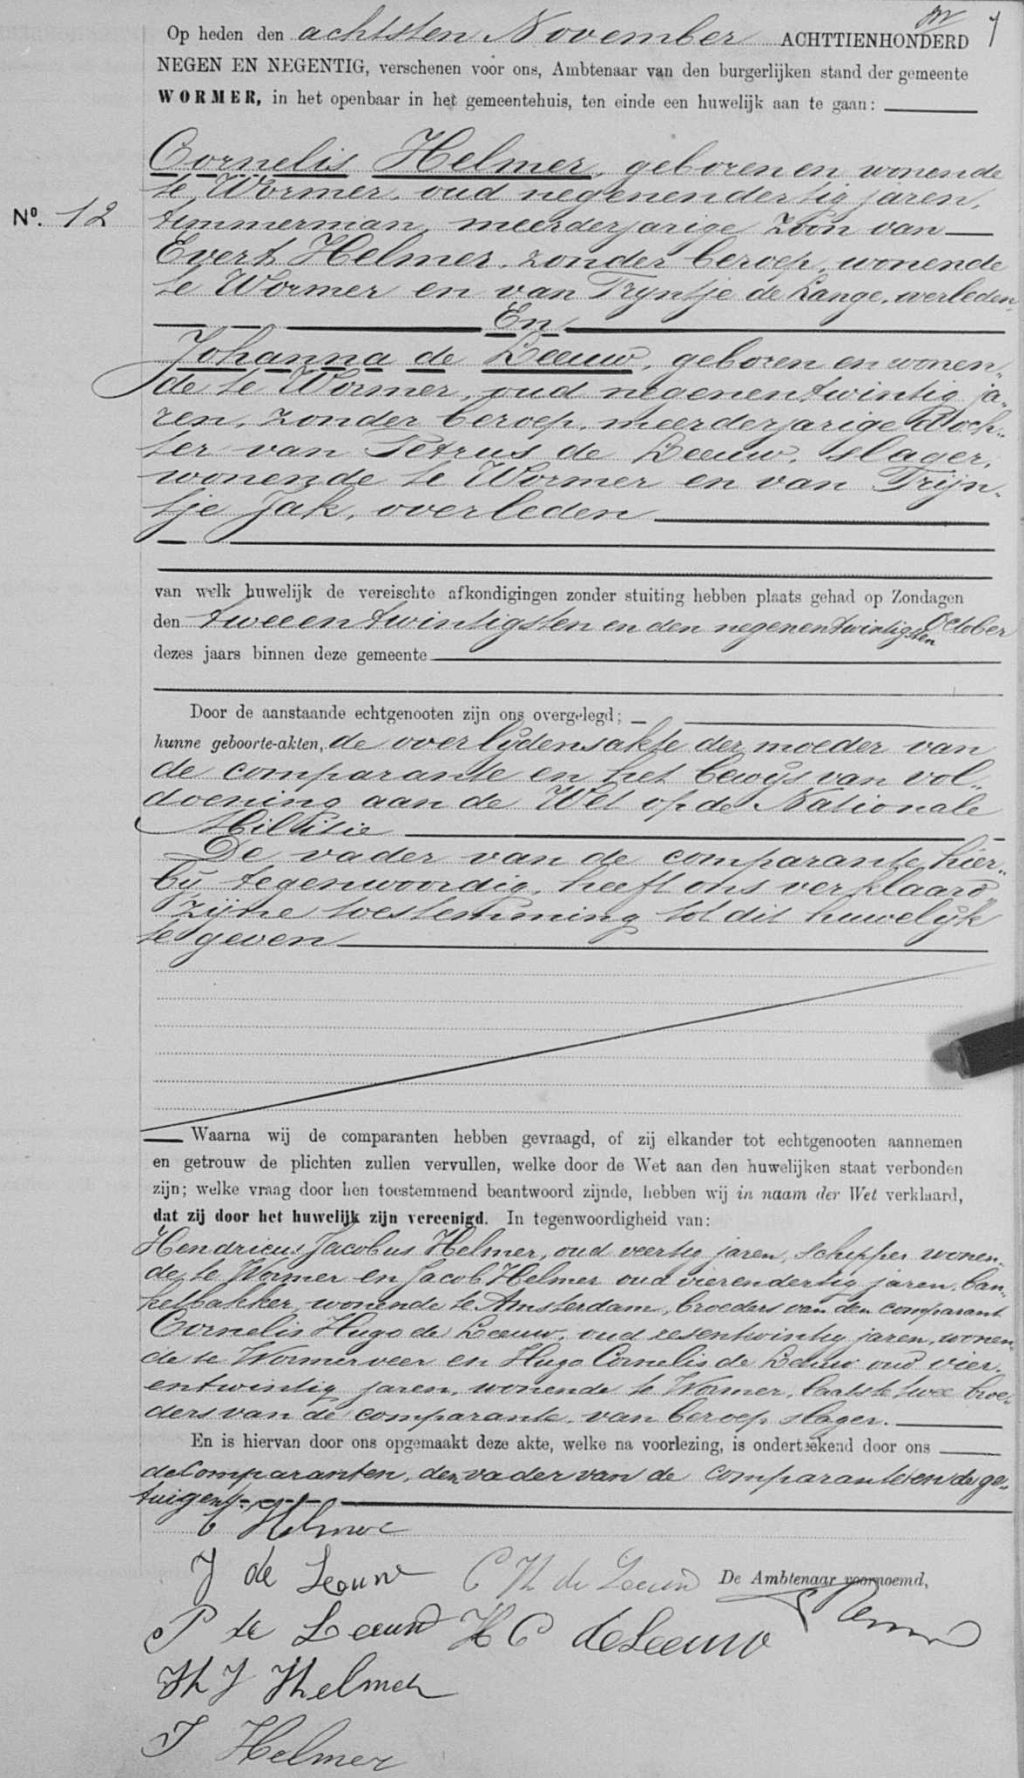 Op heden den achtsten November ACHTTIENHONDERD 7
NEGEN EN NEGENTIG, verschenen voor ons, Ambtenaar van den burgerlijken stand der gemeente
WORMER, in het openbaar in het gemeentehuis, ten einde een huwelijk aan te gaan:
Cornelis Helmer, geboren en wonende
te Wormer, oud negenendertig jaren,
No. 12 timmerman, meerderjarige zoon van
Evert Helmer, zonder beroep, wonende
te Wormer en van Tryntje de Lange, overleden
En
Johanna de Leeuw, geboren en wonen-
de te Wormer, oud negenentwintig ja-
ren, zonder beroep, meerderjarige doch-
ter van Petrus de Leeuw, slager,
wonende te Wormer en van Trijn-
tje Jak, overleden
van welk huwelijk de vereischte afkondigingen zonder stuiting hebben plaats gehad op Zondagen
den tweeentwintigsten en den negenentwintigsten October
dezes jaars binnen deze gemeente
Door de aanstaande echtgenooten zijn ons overgelegd;
hunne geboorte-akten, de overlijdensakte der moeder van
de comparante en het bewijs van vol-
doening aan de Wet op de Nationale
Militie
De vader van de comparante, hier-
bij tegenwoordig, heeft ons verklaard
zijne toestemming tot dit huwelijk
te geven
Waarna wij de comparanten hebben gevraagd, of zij elkander tot echtgenooten aannemen
en getrouw de plichten zullen vervullen, welke door de Wet aan den huwelijken staat verbonden
zijn; welke vraag door hen toestemmend beantwoord zijnde, hebben wij in naam der Wet verklaard,
dat zij door het huwelijk zijn vereenigd. In tegenwoordigheid van:
Hendricus Jacobus Helmer, oud veertig jaren, schipper wonen-
de te Wormer en Jacob Helmer oud vierendertig jaren, ban-
ketbakker, wonende te Amsterdam, broeders van den comparant
Cornelis Hugo de Leeuw, oud zesentwintig jaren, wonen-
de te Wormerveer en Hugo Cornelis de Leeuw oud vier-
entwintig jaren, wonende te Wormer, laatste twee broe-
ders van de comparante, van beroep slager.
En is hiervan door ons opgemaakt deze akte, welke na voorlezing, is onderteekend door ons
de comparanten, den vader van de comparante en de ge-
tuigen
C Helmer
J de Leeuw C H de Leeuw De Ambtenaar voornoemd,
P de Leeuw H C de Leeuw
H J Helmer
J Helmer